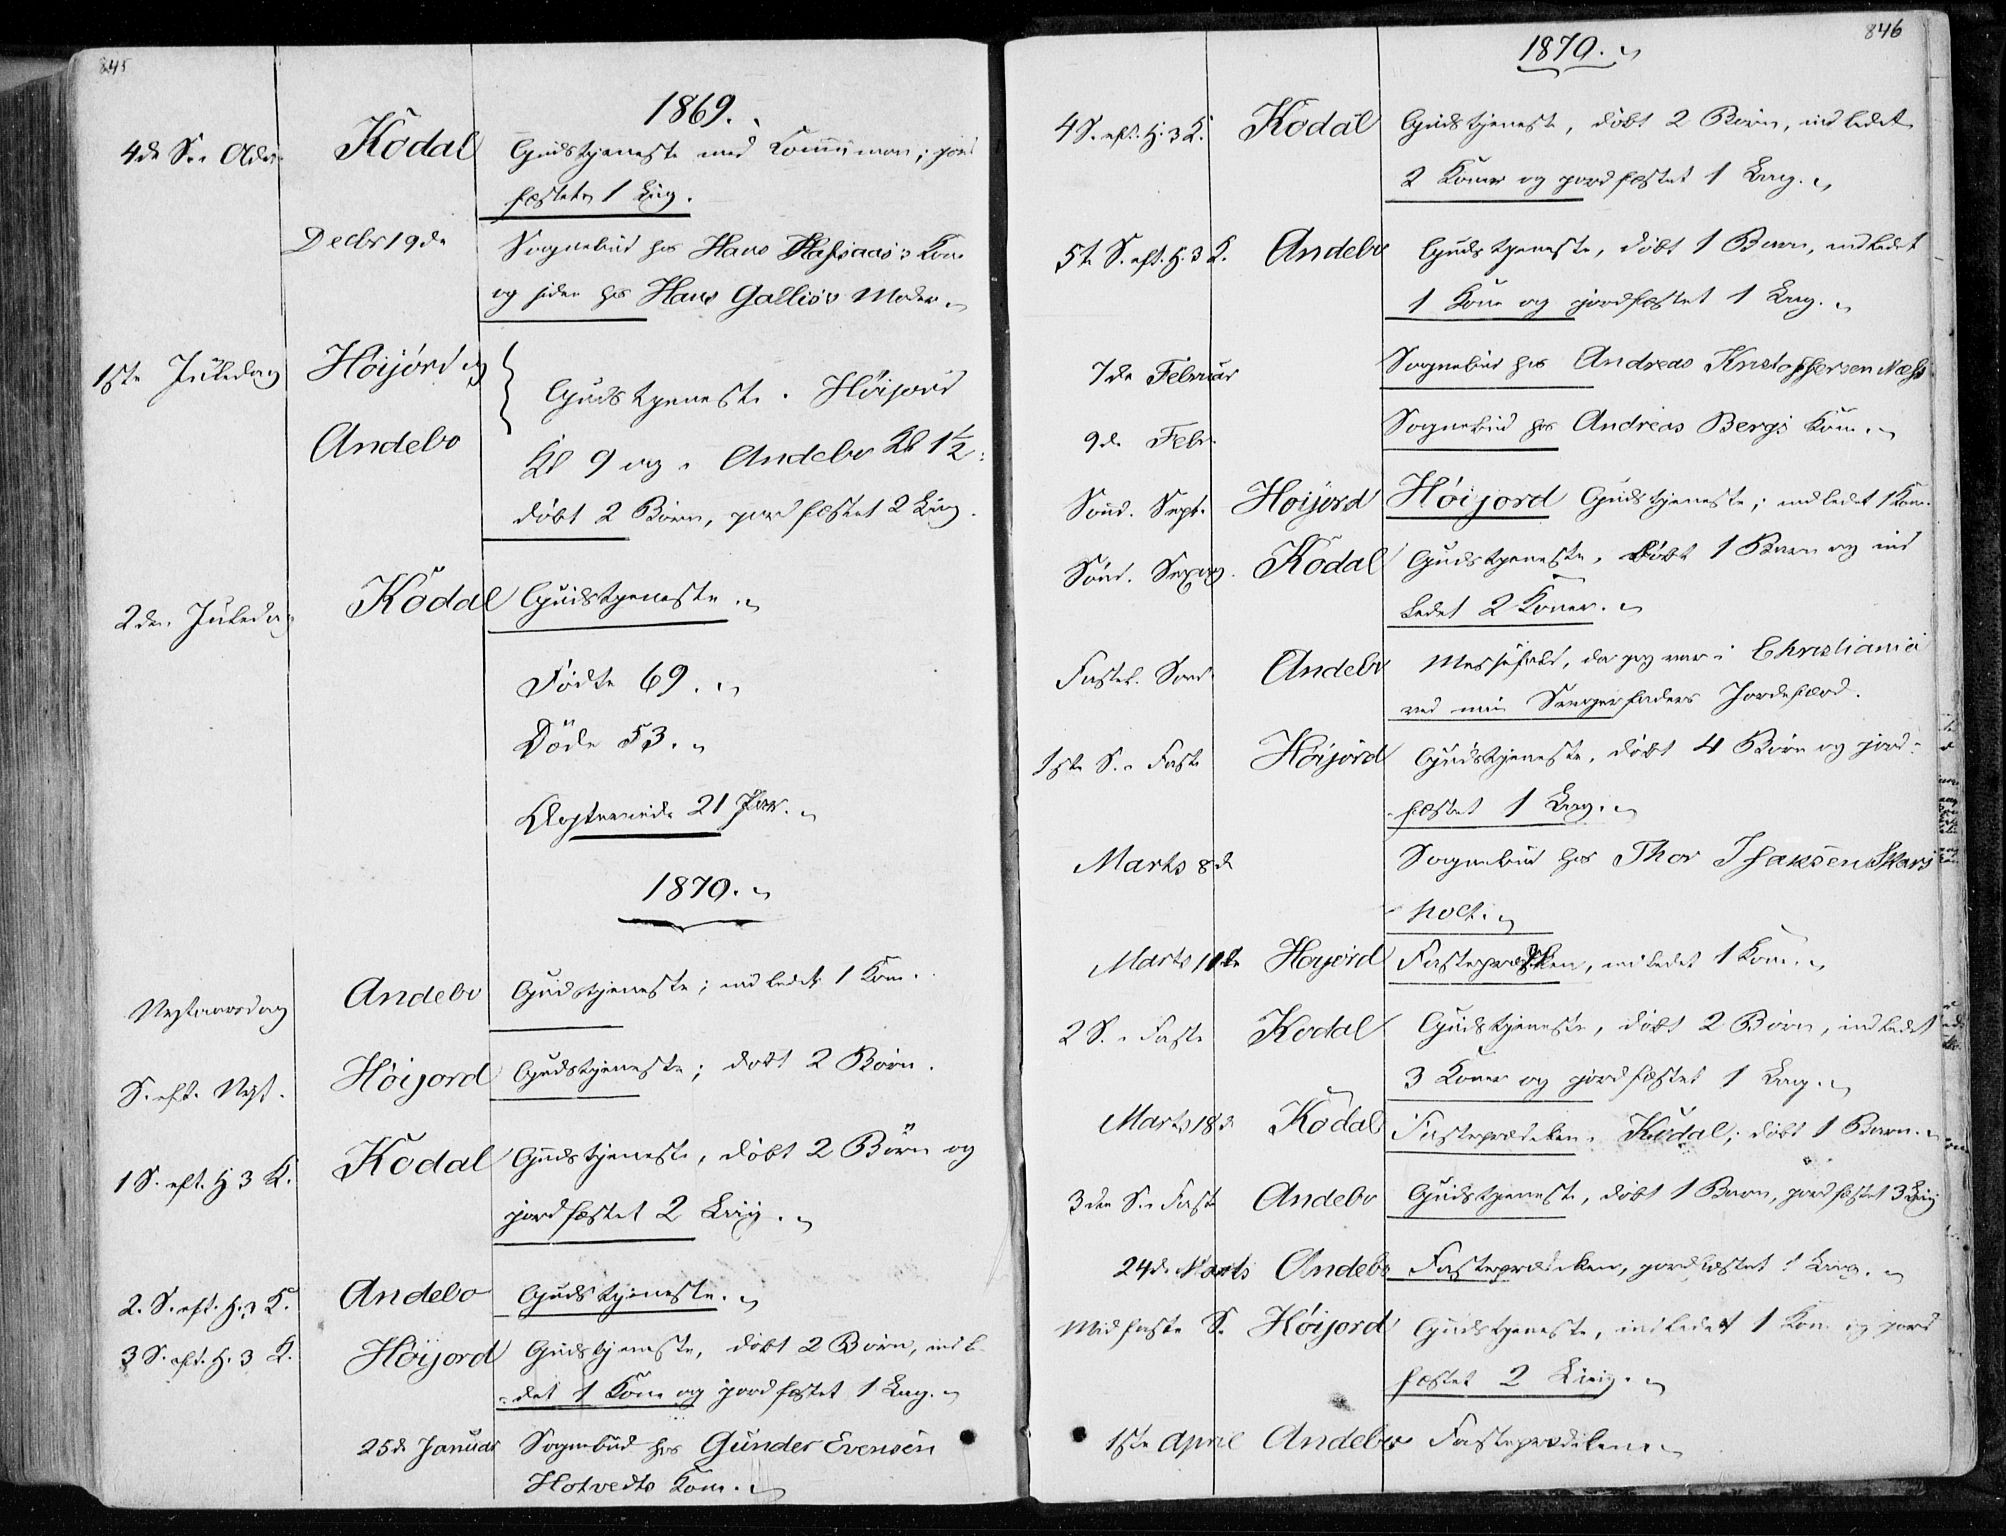 845
1869.
4de S. i Adv. Kodal Gudstjeneste med Communion; jord
fæstet 1 Liig.
Decbr 19de Sognebud hos Hans Kone
og siden hos Hans Gallis's Moder.
1ste Juledag Høijord og
Gudstjeneste i Høijord
Andebo Kl 9 og i Andebo Kl 1½;
døbt 2 Børn, jordfæstet 2 Liig.
2den Juledag Kodal Gudstjeneste.
Fødte 69.
Døde 53.
Egteviede 21 Par.
1870.
Nytaarsdag Andebo Gudstjeneste; indledet 1 Kone.
S. eft. Nyt. Høijord Gudstjeneste; døbt 2 Børn.
1 S. eft. H 3 K. Kodal Gudstjeneste, døbt 2 Børn og
jordfæstet 2 Liig.
2. S. eft. H. 3 K. Andebo Gudstjeneste.
3 S. eft. H. 3 K. Høijord Gudstjeneste, døbt 2 Børn, indle-
det 1 Kone og jordfæstet 1 Liig.
25de Januar Sognebud hos Gunder Evensen
Hotvedts Kone.
846
1870.
4 S. eft. H. 3 K. Kodal Gudstjeneste, døbt 2 Børn, indledet
2 Koner og jordfæstet 1 Liig.
5te S. eft. H. 3 K. Andebo Gudstjeneste, døbt 1 Barn, indledet
1 Kone og jordfæstet 1 Liig.
7de Februar Sognebud hos Andreas Kristoffersen Næss
9de Febr. Sognebud hos Andreas Bergs Kone.
Sønd. Sept. Høijord Høijord Gudstjeneste; indledet 1 Kone.
Sønd. Sexag. Kodal Gudstjeneste, Døbt 1 Barn og ind
ledet 2 Koner.
Fastel. Sønd. Andebo Messefald, da jeg var i Christiania
ved min Svigerfaders Jordefærd.
1ste S. i Faste Høijord Gudstjeneste, døbt 4 Børn og jord-
fæstet 1 Liig.
Marts 8de Sognebud hos Thor Isaksen Skars
holt.
Marts 11te Høijord Fasteprædiken, indledet 1 Kone.
2 S. i Faste Kodal Gudstjeneste, døbt 2 Børn, indledet
3 Koner og jordfæstet 1 Liig.
Marts 18de Kodal Fasteprædiken i Kodal; døbt 1 Barn.
3die S. i Faste Andebo Gudstjeneste, døbt 1 Barn, jordfæstet 3 Liig
24de Marts Andebo Fasteprædiken, jordfæstet 1 Liig.
Midfaste S. Høijord Gudstjeneste, indledet 1 Kone og jord
fæstet 2 Liig.
1ste April Andebo Fasteprædiken